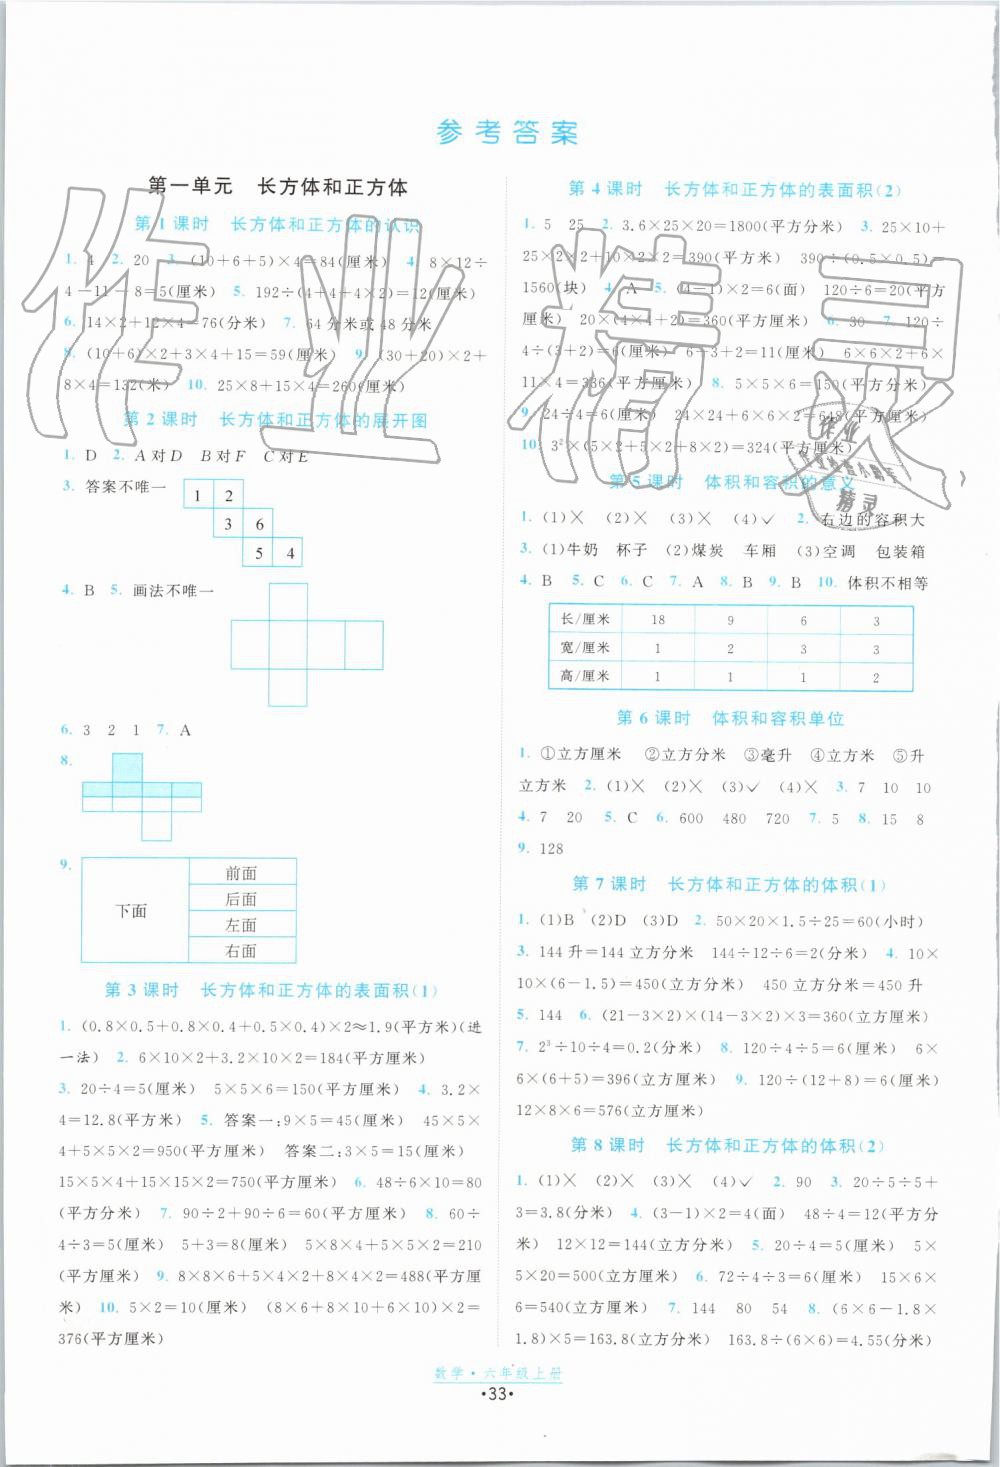 参考答案
第一单元 长方体和正方体
第1课时 长方体和正方体的认识
1. 4 2. 20 3. (10+6+5)×4=84(厘米) 4. 8×12÷
4-11-8=5(厘米) 5. 192÷(4+4+4×2)=12(厘米)
6. 14×2+12×4=76(分米) 7. 64分米或48分米
8. (10+6)×2+3×4+15=59(厘米) 9. (30+20)×2+
8×4=132(米) 10. 25×8+15×4=260(厘米)
第2课时 长方体和正方体的展开图
1. D 2. A对D B对F C对E
3. 答案不唯一
1 2
3 6
5 4
4. B 5. 画法不唯一
6. 3 2 1 7. A
8.
9.
下面
前面
后面
左面
右面
第3课时 长方体和正方体的表面积(1)
1. (0.8×0.5+0.8×0.4+0.5×0.4)×2≈1.9(平方米)(进
一法) 2. 6×10×2+3.2×10×2=184(平方厘米)
3. 20÷4=5(厘米) 5×5×6=150(平方厘米) 4. 3.2×
4=12.8(平方米) 5. 答案一:9×5=45(厘米) 45×5×
4+5×5×2=950(平方厘米) 答案二:3×5=15(厘米)
15×5×4+15×15×2=750(平方厘米) 6. 48÷6×10=80
(平方分米) 7. 90÷2+90÷6=60(平方厘米) 8. 60÷
4÷3=5(厘米) 5+3=8(厘米) 5×8×4+5×5×2=210
(平方厘米) 9. 8×8×6+5×4×2+8×4×2=488(平方厘
米) 10. 5×2=10(厘米) (8×6+8×10+6×10)×2=
376(平方厘米)
第4课时 长方体和正方体的表面积(2)
1. 5 25 2. 3.6×25×20=1800(平方分米) 3. 25×10+
25×2×2+10×2×2=390(平方米) 390÷(0.5×0.5)=
1560(块) 4. A 5. (4-1)×2=6(面) 120÷6=20(平方
厘米) 20×(4×4+2)=360(平方厘米) 6. 30 7. 120÷
4÷(3+2)=6(厘米) 6+3+2=11(厘米) 6×6×2+6×
11×4=336(平方厘米) 8. 5×5×6=150(平方厘米)
9. 24÷4=6(厘米) 24×24+6×6×2=648(平方厘米)
10. 3²×(5×2+5×2+8×2)=324(平方厘米)
第5课时 体积和容积的意义
1. (1)× (2)× (3)× (4)✓ 2. 右边的容积大
3. (1)牛奶 杯子 (2)煤炭 车厢 (3)空调 包装箱
4. B 5. C 6. C 7. A 8. B 9. B 10. 体积不相等
长/厘米 18 9 6 3
宽/厘米 1 2 3 3
高/厘米 1 1 1 2
第6课时 体积和容积单位
1. ①立方厘米 ②立方分米 ③毫升 ④立方米 ⑤升
立方米 2. (1)× (2)× (3)✓ (4)× 3. 7 10 10
4. 7 20 5. C 6. 600 480 720 7. 5 8. 15 8
9. 128
第7课时 长方体和正方体的体积(1)
1. (1)B (2)D (3)D 2. 50×20×1.5÷25=60(小时)
3. 144升=144立方分米 144÷12÷6=2(分米) 4. 10×
10×(6-1.5)=450(立方分米) 450立方分米=450升
5. 144 6. (21-3×2)×(14-3×2)×3=360(立方厘米)
7. 2³÷10÷4=0.2(分米) 8. 120÷4÷5=6(厘米) 6×
6×(6+5)=396(立方厘米) 9. 120÷(12+8)=6(厘米)
12×8×6=576(立方厘米)
第8课时 长方体和正方体的体积(2)
1. (1)× (2)× (3)× (4)✓ 2. 90 3. 20÷5÷5+
3=3.8(分米) 4. (3-1)×2=4(面) 48÷4=12(平方分
米) 12×12=144(立方分米) 5. 20÷4=5(厘米) 5×
5×20=500(立方厘米) 6. 72÷4÷3=6(厘米) 6×6×
6=540(立方厘米) 7. 144 80 54 8. (6×6-1.8×
1.8)×5=163.8(立方分米) 163.8÷(6×6)=4.55(分米)
数学·六年级上册
·33·
作业精灵
作业
作业检查小助手
精灵